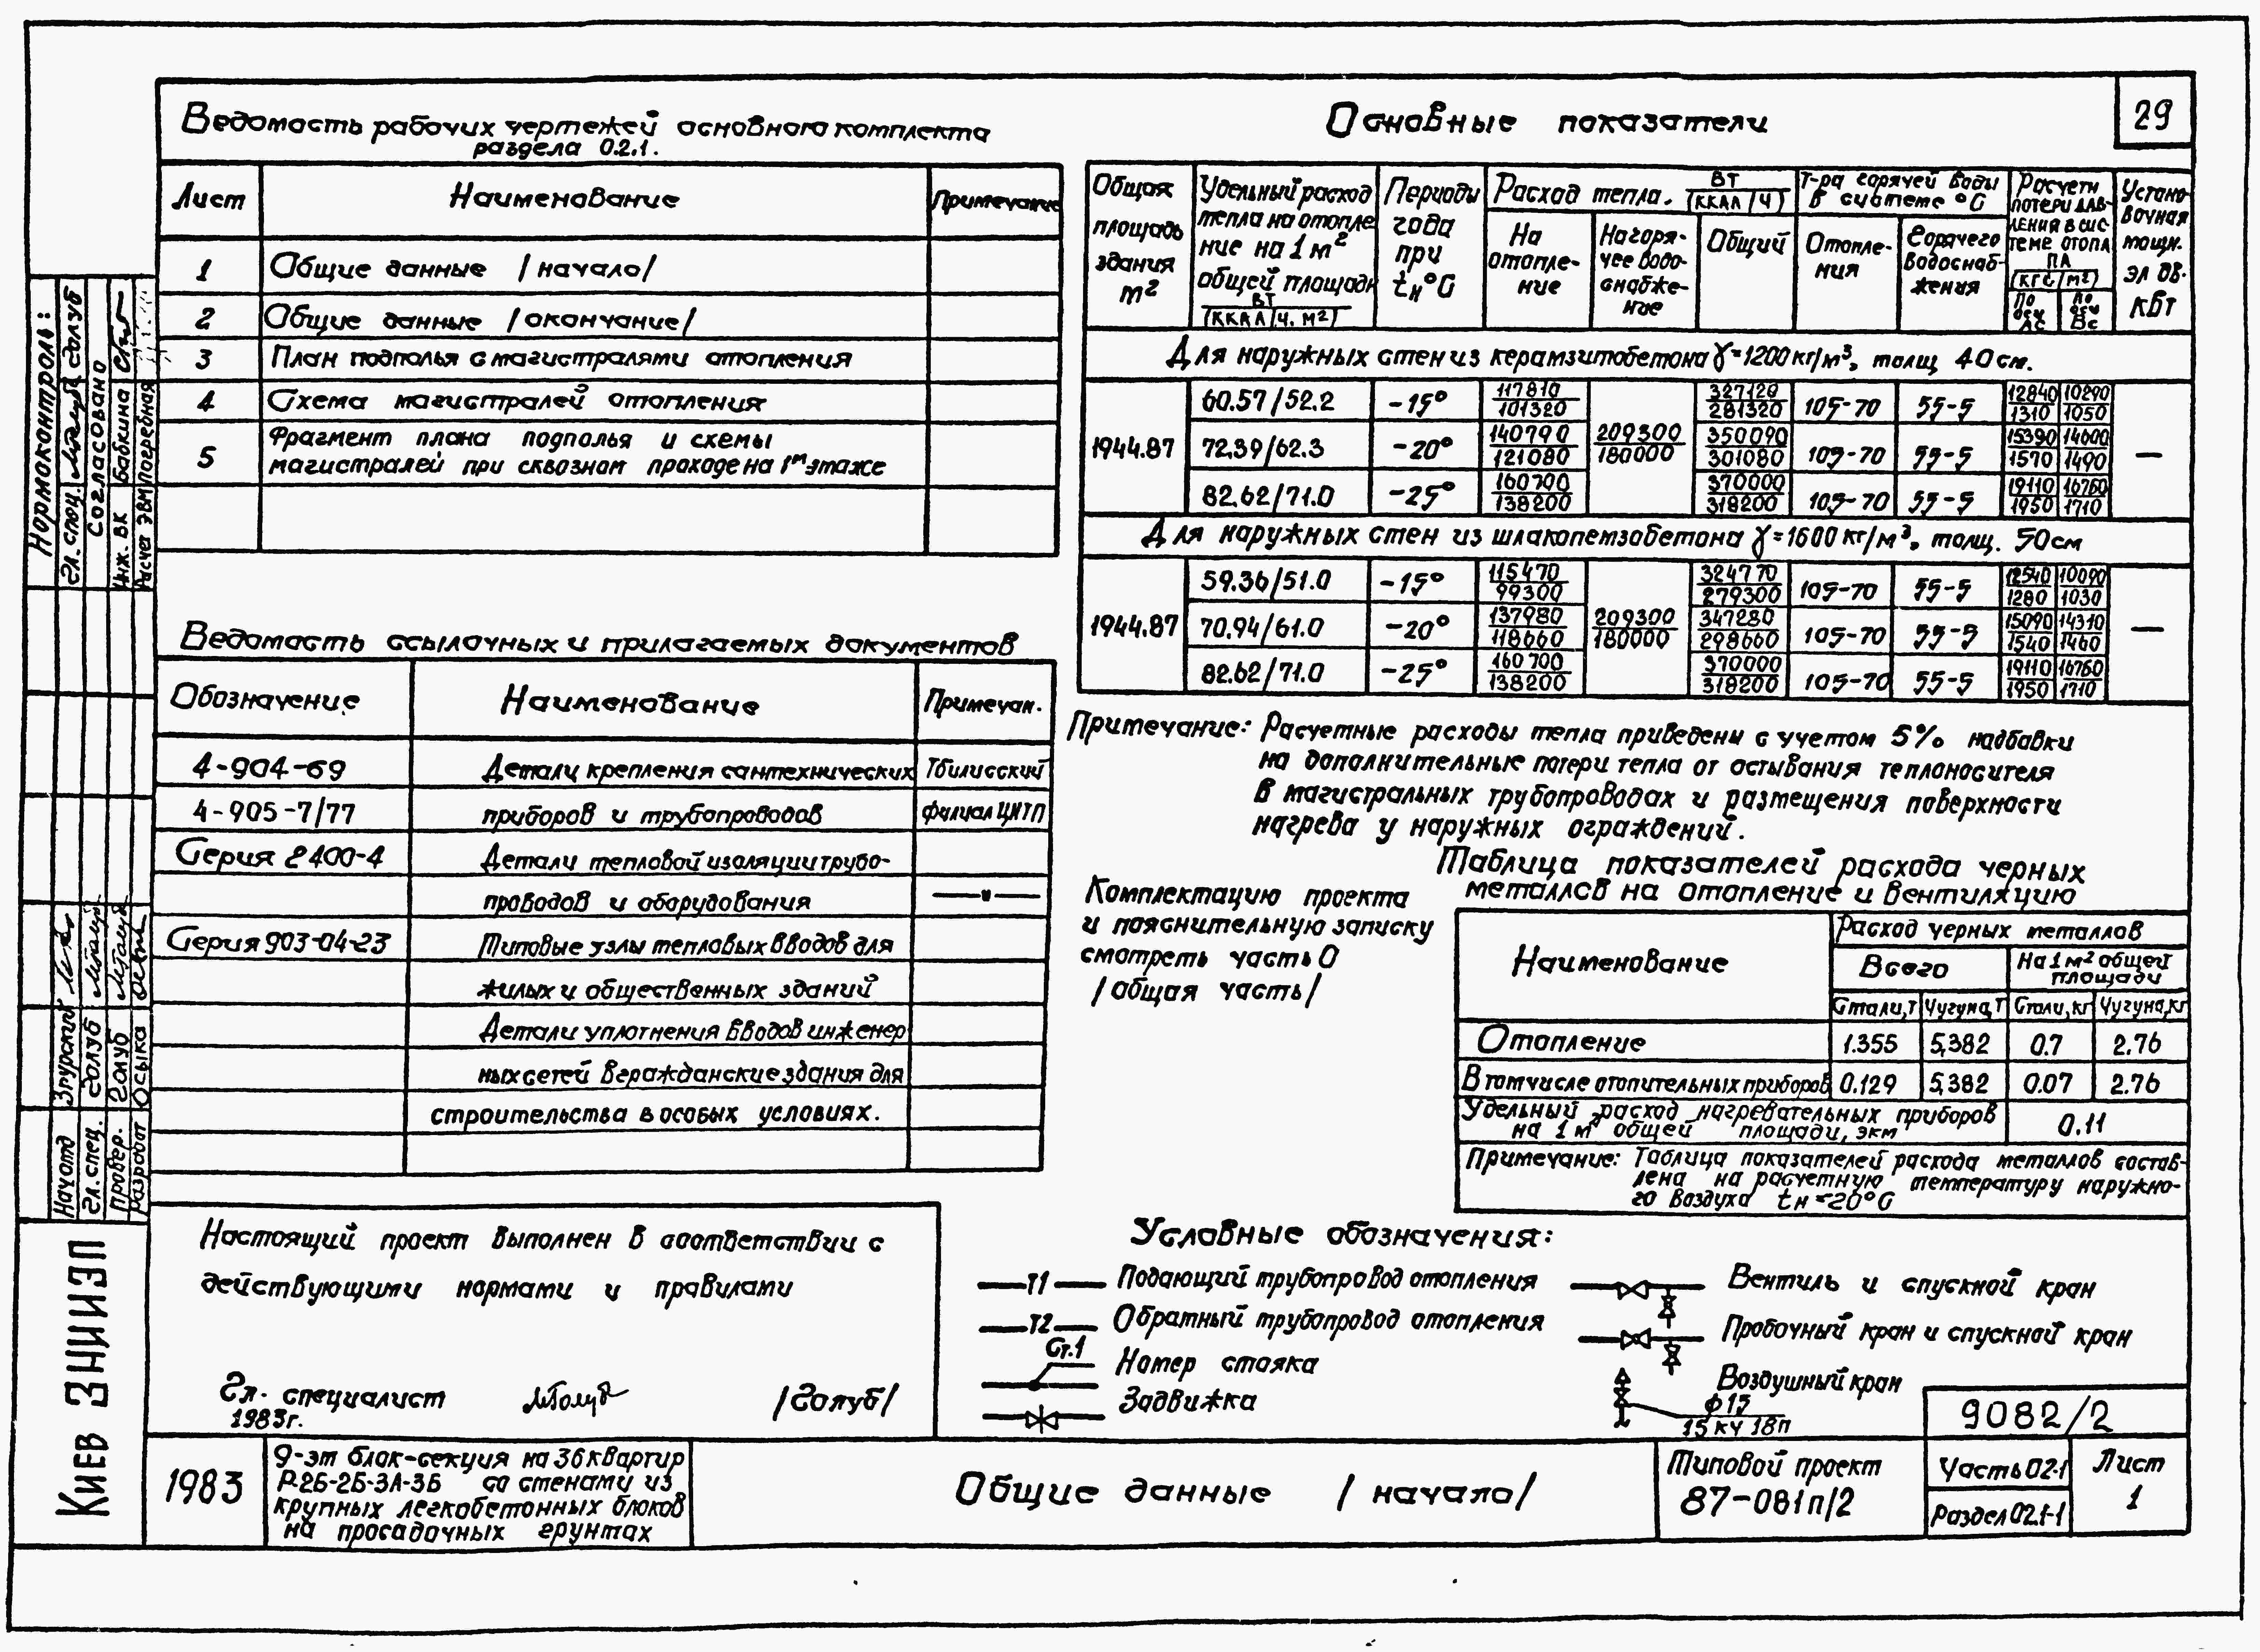 29
Ведомость рабочих чертежей основного комплекта
раздела 0.2.1.
Лист Наименование Примечание
1 Общие данные /начало/
2 Общие данные /окончание/
3 План подполья с магистралями отопления
4 Схема магистралей отопления
5 Фрагмент плана подполья и схемы
магистралей при сквозном проходе на 1м этаже
Ведомость ссылочных и прилагаемых документов
Обозначение Наименование Примечан.
4-904-69 Детали крепления сантехнических Тбилисский
4-905-7/77 приборов и трубопроводов филиал ЦИТП
Серия 2400-4 Детали тепловой изоляции трубо-
проводов и оборудования —"—
Серия 903-04-23 Типовые узлы тепловых вводов для
жилых и общественных зданий
Детали уплотнения вводов инженер
ных сетей в гражданские здания для
строительства в особых условиях.
Настоящий проект выполнен в соответствии с
действующими нормами и правилами
Гл. специалист /Голуб/
1983г.
Основные показатели
Общая площадь здания м²
Удельный расход тепла на отопление на 1 м² общей площади ВТ/(ККАЛ/ч.м²)
Периоды года при tн°С
Расход тепла. ВТ/(ККАЛ/Ч)
На отопление
На горячее водоснабжение
Общий
Т-ра горячей воды в системе °С
Отопления
Горячего водоснабжения
Расчетн потери давления в системе отопл ПА (КГС/М²)
По оси Ас
По оси Вс
Установочная мощн. эл дв. кВт
Для наружных стен из керамзитобетона γ=1200 кг/м³, толщ 40 см.
1944.87 60.57/52.2 -15° 117810/101320 209300/180000 327120/281320 105-70 55-5 12840/1310 10290/1050 —
72.39/62.3 -20° 140790/121080 350090/301080 105-70 55-5 15390/1570 14600/1490
82.62/71.0 -25° 160700/138200 370000/318200 105-70 55-5 19110/1950 16760/1710
Для наружных стен из шлакопемзабетона γ=1600 кг/м³, толщ. 50см
1944.87 59.36/51.0 -15° 115470/99300 209300/180000 324770/279300 105-70 55-5 12540/1280 10090/1030 —
70.94/61.0 -20° 137980/118660 347280/298660 105-70 55-5 15090/1540 14310/1460
82.62/71.0 -25° 160700/138200 370000/318200 105-70 55-5 19110/1950 16760/1710
Примечание: Расчетные расходы тепла приведены с учетом 5% надбавки
на дополнительные потери тепла от остывания теплоносителя
в магистральных трубопроводах и размещения поверхности
нагрева у наружных ограждений.
Комплектацию проекта
и пояснительную записку
смотреть часть 0
/общая часть/
Таблица показателей расхода черных
металлов на отопление и вентиляцию
Наименование Расход черных металлов
Всего На 1 м² общей площади
Стали,т Чугуна,т Стали,кг Чугуна,кг
Отопление 1.355 5,382 0.7 2.76
В том числе отопительных приборов 0.129 5,382 0.07 2.76
Удельный расход нагревательных приборов
на 1 м² общей площади, экм 0.11
Примечание: Таблица показателей расхода металлов состав-
лена на расчетную температуру наружно-
го воздуха tн=-20°С
Условные обозначения:
Т1 Подающий трубопровод отопления
Т2 Обратный трубопровод отопления
Ст.1 Номер стояка
Задвижка
Вентиль и спускной кран
Пробочный кран и спускной кран
Воздушный кран
ф15
15 кч 18п
9082/2
1983
9-эт блок-секция на 36 квартир
Р-2Б-2Б-3А-3Б со стенами из
крупных легкобетонных блоков
на просадочных грунтах
Общие данные /начало/
Типовой проект
87-081п/2
Часть 02-1
Раздел 02.1-1
Лист
1
Нормоконтроль:
Гл. спец. Голуб
Согласовано
Инж. ВК Бабкина
Расчет ЭВМ Погребная
Нач отд
Гл. спец. Голуб
Провер. Голуб
Разработ Осыка
Киев ЗНИИЭП